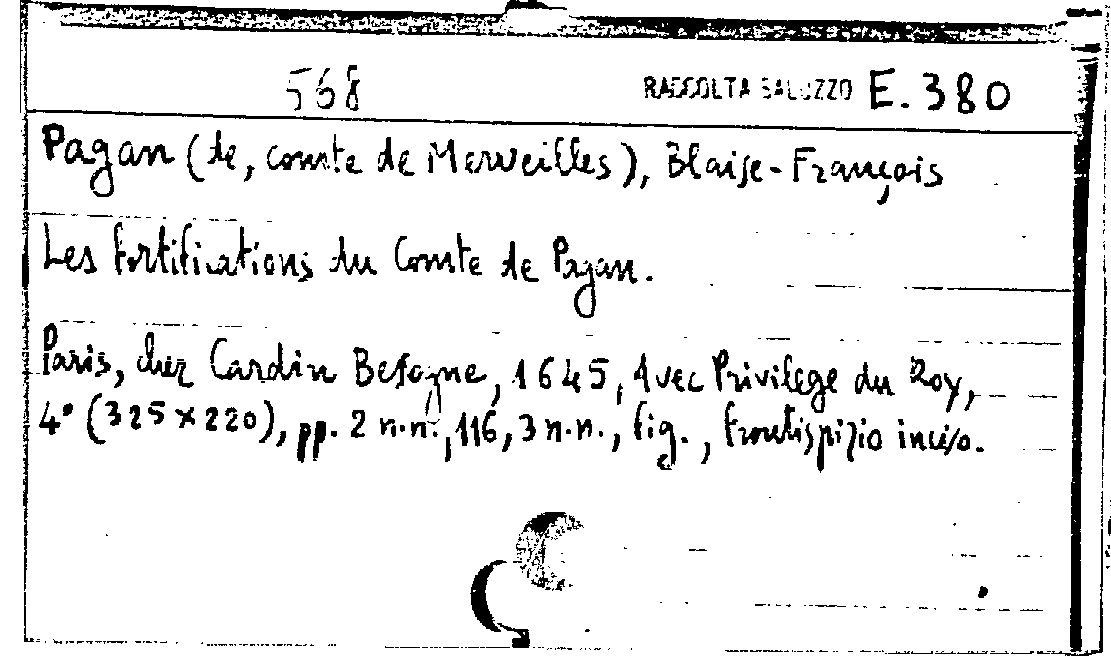 568 RACCOLTA SALUZZO E.380
Pagan (de, comte de Merveilles), Blaise-François
Les fortifications du Comte de Pagan.
Paris, chez Cardin Besogne, 1645, Avec Privilege du Roy,
4° (325 x 220), pp. 2 n.n., 116, 3 n.n., fig., frontispizio inciso.